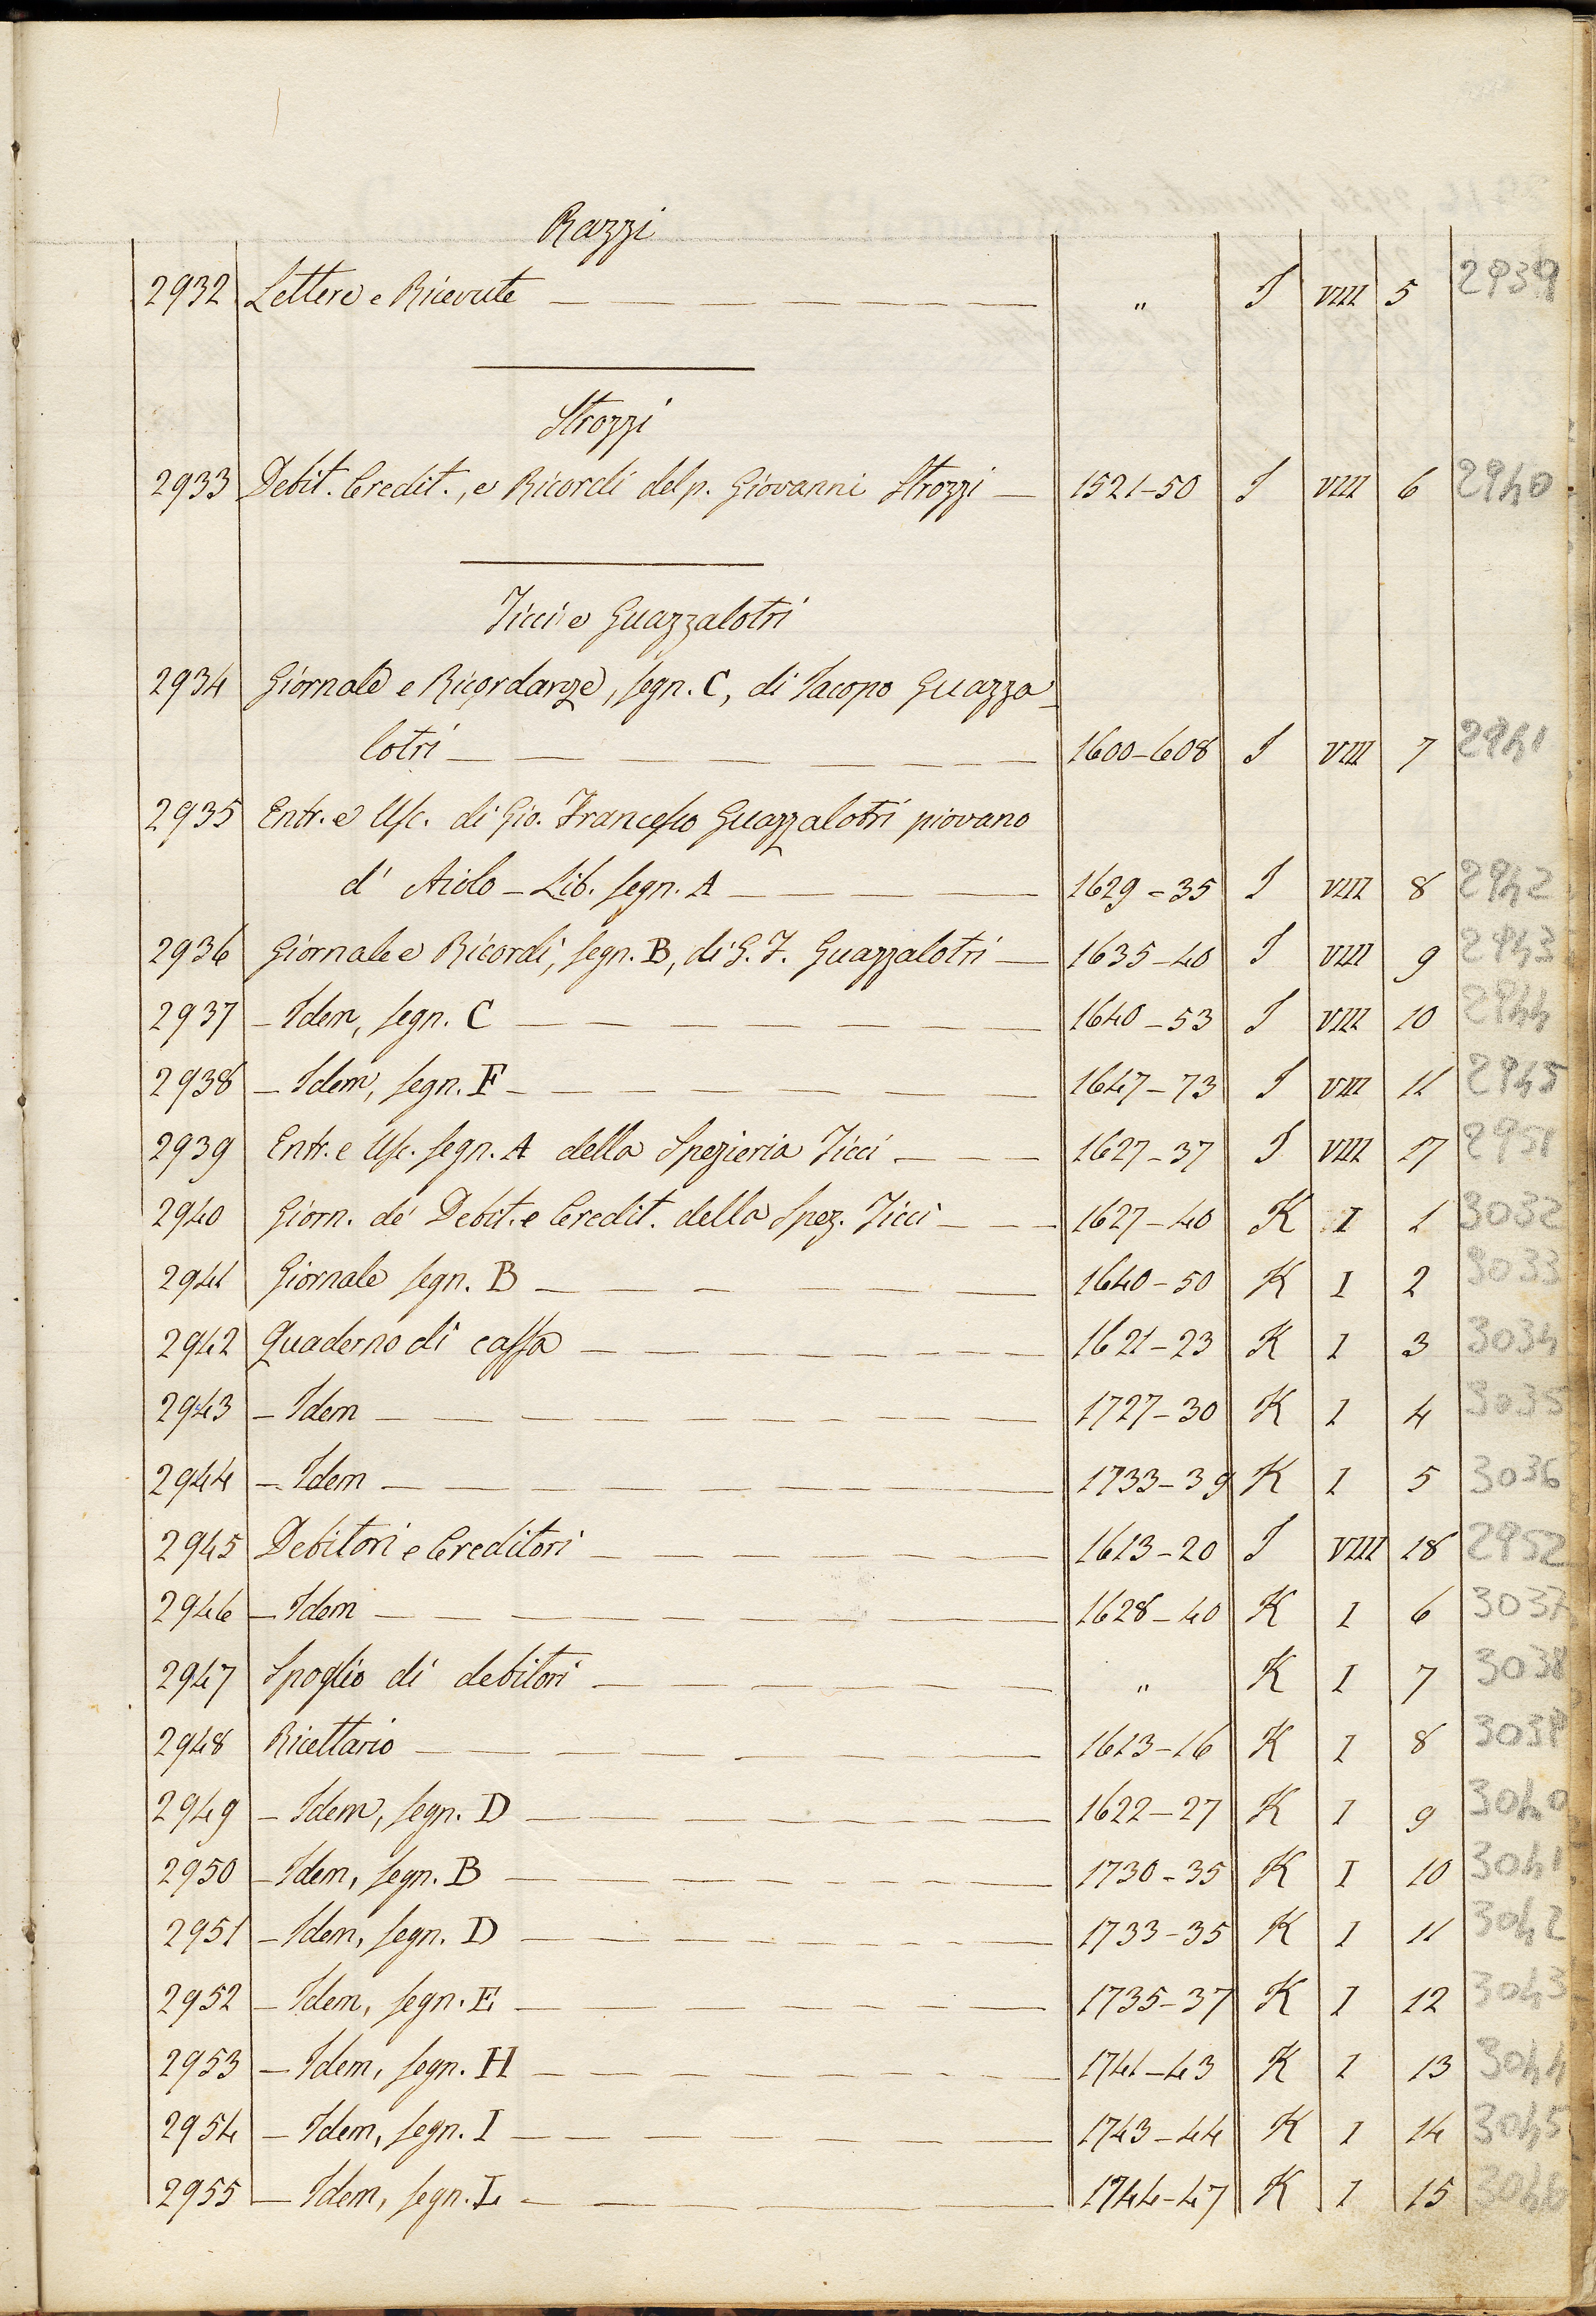 Razzi
2932 Lettere e Ricevute — „ I VIII 5 2939
Strozzi
2933 Debit. Credit., e Ricordi del p. Giovanni Strozzi — 1521-50 I VIII 6 2940
Ticci e Guazzalotri
2934 Giornale e Ricordanze, segn. C, di Iacopo Guazza-
lotri — 1600-608 I VIII 7 2941
2935 Entr. e Usc. di Gio. Francesco Guazzalotri piovano
d' Aiolo - Lib. segn. A — 1629-35 I VIII 8 2942
2936 Giornale e Ricordi, segn. B, di G. F. Guazzalotri — 1635-40 I VIII 9 2943
2937 - Idem, segn. C — 1640-53 I VIII 10 2944
2938 - Idem, segn. F — 1647-73 I VIII 11 2945
2939 Entr. e Usc. segn. A della Spezieria Ticci — 1627-37 I VIII 17 2951
2940 Giorn. de' Debit. e Credit. della Spez. Ticci — 1627-40 K I 1 3032
2941 Giornale segn. B — 1640-50 K I 2 3033
2942 Quaderno di cassa — 1621-23 K I 3 3034
2943 - Idem — 1727-30 K I 4 3035
2944 - Idem — 1733-39 K I 5 3036
2945 Debitori e Creditori — 1613-20 I VIII 18 2952
2946 - Idem — 1628-40 K I 6 3037
2947 Spoglio di debitori — „ K I 7 3038
2948 Ricettario — 1613-16 K I 8 3039
2949 - Idem, segn. D — 1622-27 K I 9 3040
2950 - Idem, segn. B — 1730-35 K I 10 3041
2951 - Idem, segn. D — 1733-35 K I 11 3042
2952 - Idem, segn. E — 1735-37 K I 12 3043
2953 - Idem, segn. H — 1741-43 K I 13 3044
2954 - Idem, segn. I — 1743-44 K I 14 3045
2955 - Idem, segn. L — 1744-47 K I 15 3046